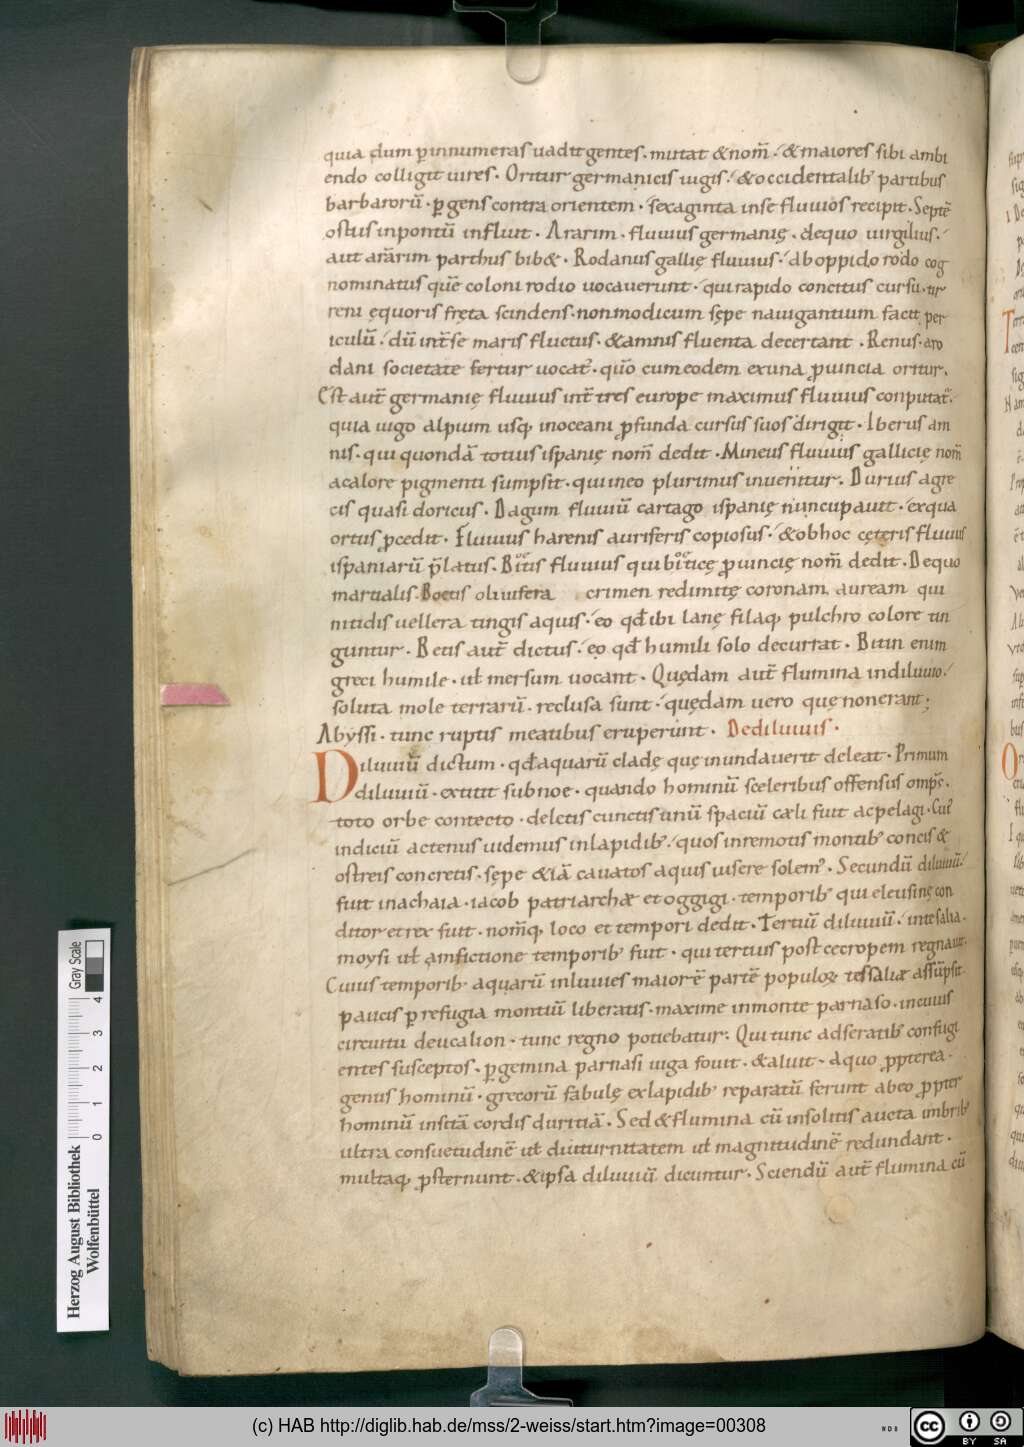 quia dum ꝑ innumeras uadit gentes · mutat & nom̄ · & maiores sibi ambi
endo colligit uires · Oritur germanicis iugis · & occidentalib; partibus
barbarorū · ꝑgens contra orientem · sexaginta inse fluuios recipit · Septē
ostus inpontū influit · Ararim · fluuius germanię · dequo uirgilius ·
aut ararim parthus bib& · Rodanus gallię fluuius · aboppido rodo cog
nominatus quē coloni rodio uocauerunt · qui rapido concitus cursu · tir
reni ęquoris freta scindens · non modicum sępe nauigantium facit per
iculū · dū int̄ se maris fluctus · & amnis fluenta decertant · Renus · aro
dani societate fertur uocat᷒ · qūo cum eodem exuna ꝓuincia oritur ·
Est aut̄ germanię fluuius int̄ tres europe maximus fluuius conputat᷒ ·
quia iugo alpium usq; inoceani ꝓfunda cursus suos dirigit · Iberus am
nis · qui quondā totius ispanię nom̄ dedit · Mineus fluuius gallicię nom̄
acalore pigmenti sumpsit · qui ineo plurimus inuenitur · Durius agre
cis quasi doricus · Dagum fluuiū cartago ispanię nuncupauit · exqua
ortus ꝓcedit · Fluuius harenis auriferis copiosus · & obhoc ceteris fluuiis
ispaniarū p̄latus · Bitis fluuius qui biticę ꝓuincię nom̄ dedit · Dequo
martialis · Boetis oliuifera crimen redimitę coronam auream qui
nitidis uellera tingis aquis · eo qđ ibi lanę filaq, pulchro colore tin
guntur · Betis aut̄ dictus · eo qđ humili solo decurrat · Bitin enim
greci humile · uł mersum uocant · Quędam aut̄ flumina indiluuio ·
soluta mole terrarū · reclusa sunt · quędam uero quę non erant ;
Abyssi · tunc ruptis meatibus eruperunt · Dediluuiis ·
Diluuiū dictum · qđ aquarū cladę quę inundauerit deleat · Primum
diluuiū · extitit sub noe · quando hominū sceleribus offensus omps̄ ·
toto orbe contecto · deletis cunctis unū spaciū cæli fuit ac pelagi · Cui᷒
indiciū actenus uidemus inlapidib; · quos inremotis montib; concis &
ostreis concretis · sępe & iā cauatos aquis uisere solem᷒ · Secundū diluuiū ·
fuit inachaia · iacob patriarchæ et oggigi · temporib; qui eleusinę con
ditor et rex fuit · nom̄q, loco et tempori dedit · Tertiū diluuiū · intesalia ·
moysi uł amfictione temporib; fuit · qui tertius post cecropem regnauit ·
Cuius temporib; aquarū inluuies maiorē partē populoꝝ tessaliæ assūpsit ·
paucis ꝑ refugia montiū liberatis · maxime inmonte parnaso · incuius
circuitu deucalion · tunc regno potiebatur · Qui tunc adseratib; confugi
entes susceptos · ꝑ gemina parnasi iuga fouit · & aluit · a quo ꝓpterea ·
genus hominū · grecorū fabulę exlapidib; reparatū ferunt ab eo ꝓpter
hominū insitā cordis duritiā · Sed & flumina cū insolitis aucta imbrib;
ultra consuetudinē uł diuturnitatem uł magnitudinē redundant ·
multaq, ꝓsternunt · & ipsa diluuiū dicuntur · Sciendū aut̄ flumina cū
Herzog August Bibliothek
Wolfenbüttel
Gray Scale
0 1 2 3 4
(c) HAB http://diglib.hab.de/mss/2-weiss/start.htm?image=00308
cc BY SA